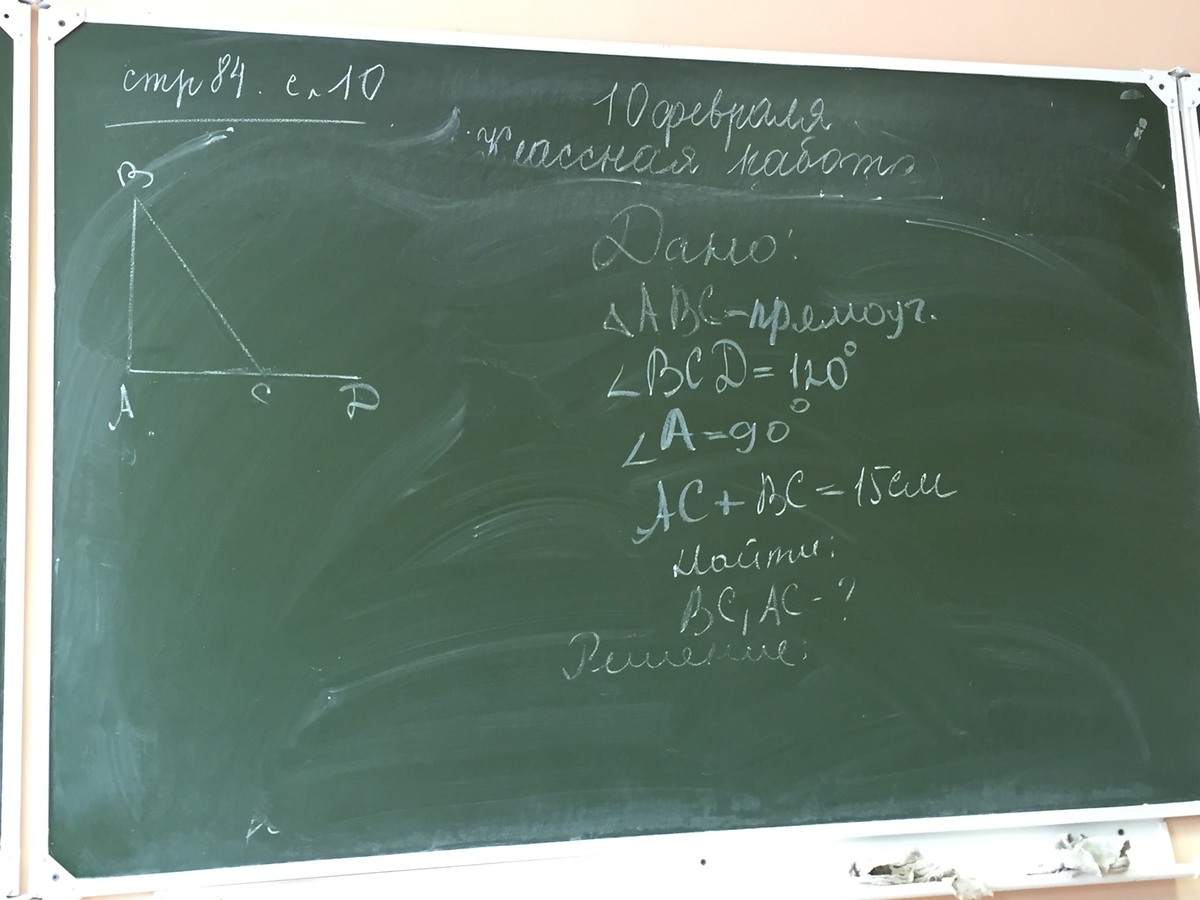 стр 84. с.10
10 февраля
Классная работа
B
A
C
D
Дано:
△ABC-прямоуг.
∠BCD=120°
∠A=90°
AC+BC=15см
Найти:
BC, AC-?
Решение: